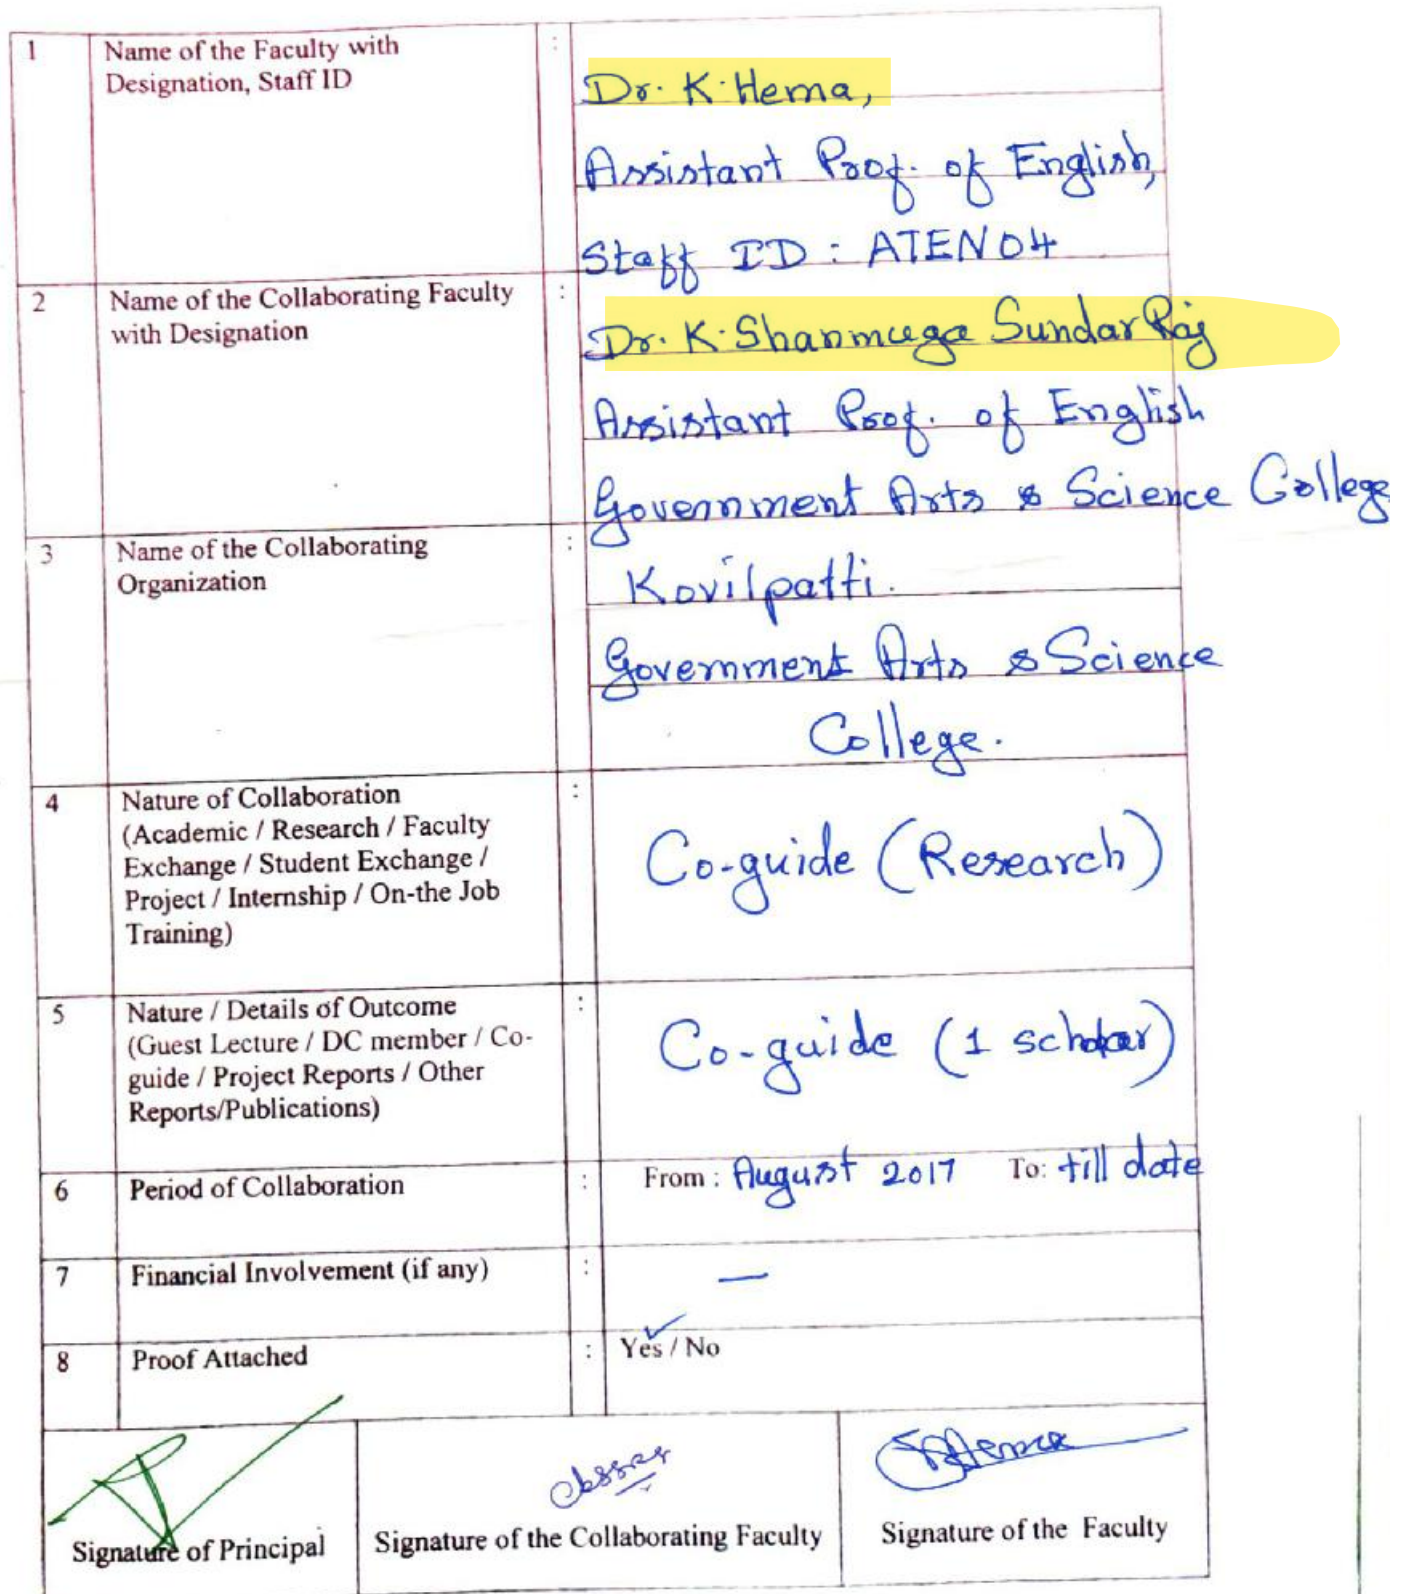 1 Name of the Faculty with : Dr. K. Hema,
Designation, Staff ID
Assistant Prof. of English,
Staff ID : ATEN04
2 Name of the Collaborating Faculty : Dr. K. Shanmuga Sundar Raj
with Designation
Assistant Prof. of English
Government Arts & Science College
3 Name of the Collaborating : Kovilpatti.
Organization
Government Arts & Science
College.
4 Nature of Collaboration : Co-guide (Research)
(Academic / Research / Faculty
Exchange / Student Exchange /
Project / Internship / On-the Job
Training)
5 Nature / Details of Outcome : Co-guide (1 scholar)
(Guest Lecture / DC member / Co-
guide / Project Reports / Other
Reports/Publications)
6 Period of Collaboration : From : August 2017 To: till date
7 Financial Involvement (if any) : —
8 Proof Attached : Yes / No
Hema
Signature of Principal Signature of the Collaborating Faculty Signature of the Faculty